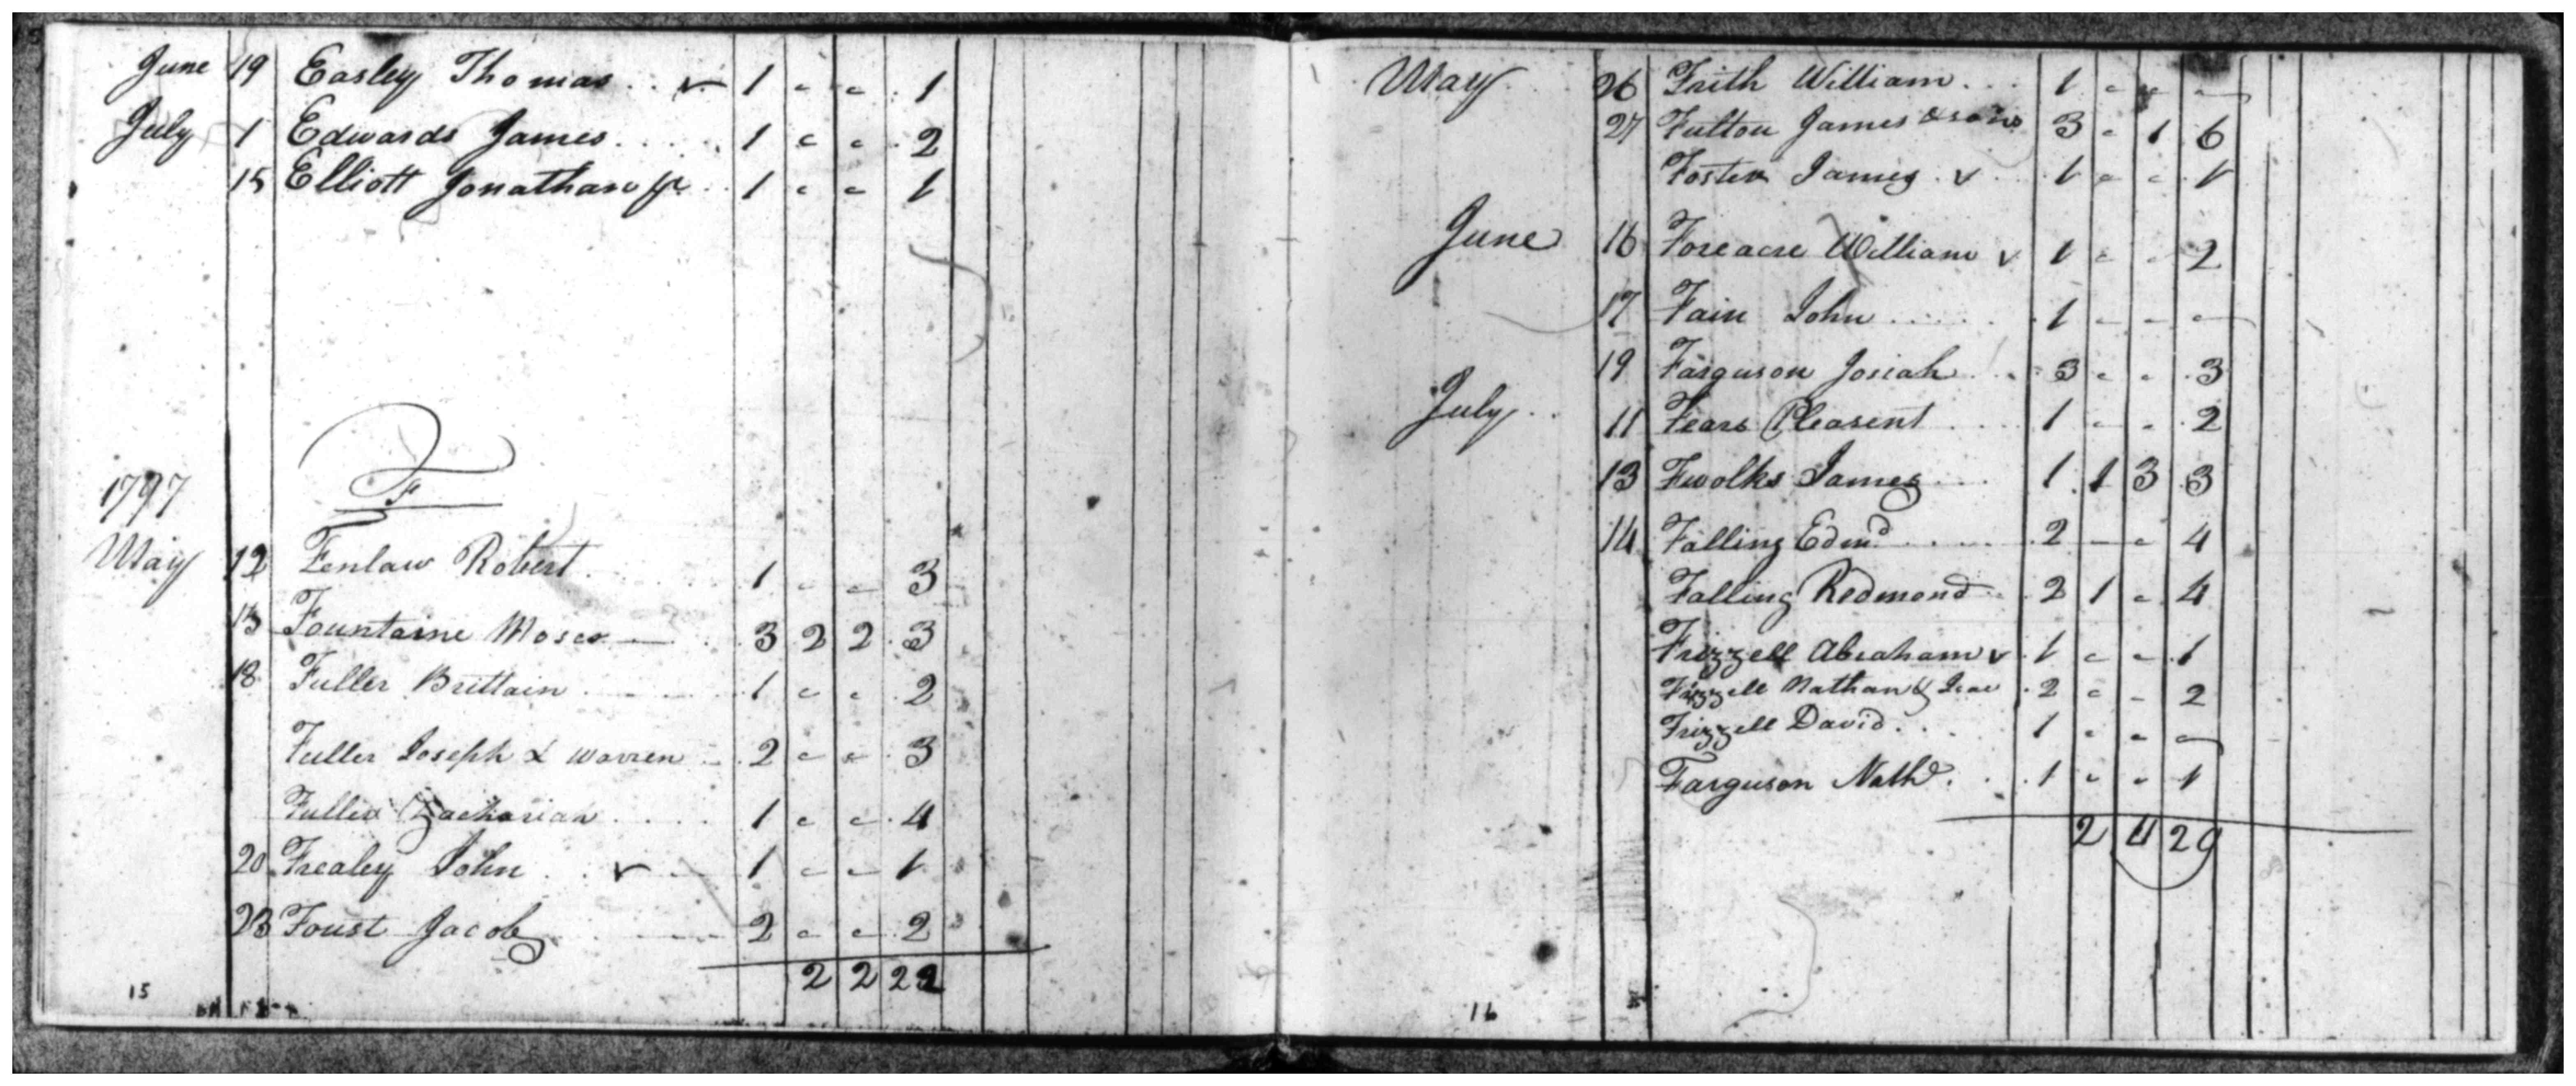 June 19 Easley Thomas . . v 1 - - 1
July 1 Edwards James . . . . . 1 - - 2
15 Elliott Jonathan jr . . 1 - - 1
F
1797
May 12 Fenlaw Robert . 1 - - 3
13 Fountaine Moses 3 2 2 3
18 Fuller Brittain . 1 - - 2
Fuller Joseph & Warren 2 - - 3
Fuller Zachariah . . . . 1 - - 4
20 Frealey John . . v 1 - - 1
23 Foust Jacob 2 - - 2
2 2 22
15
May 26 Frith William . . . 1 - - -
27 Fulton James & sons 3 - 1 6
Foster James . v . 1 - - 1
June 16 Foreacre William v 1 - - 2
17 Fain John . . . . . 1 - - -
19 Farguson Josiah . . . 3 - - 3
July . . 11 Fears Pleasent . . . 1 - - 2
13 Fwolks James . . . 1 1 3 3
14 Falling Edmd . . . . . 2 - - 4
Falling Redmond . . 2 1 - 4
Frizzell Abraham v . 1 - - 1
Frizzell Nathan & Isac . 2 - - 2
Frizzell David . . . 1 - - -
Farguson Nathl . . . 1 - - 1
2 4 29
16